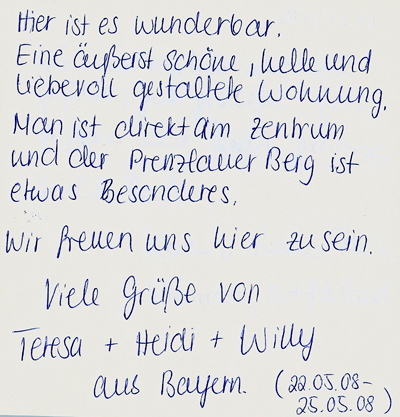 Hier ist es wunderbar.
Eine äußerst schöne, helle und
liebevoll gestaltete Wohnung.
Man ist direkt am Zentrum
und der Prenzlauer Berg ist
etwas Besonderes.
Wir freuen uns hier zu sein.
Viele Grüße von
Teresa + Heidi + Willy
aus Bayern. (22.05.08-
25.05.08)